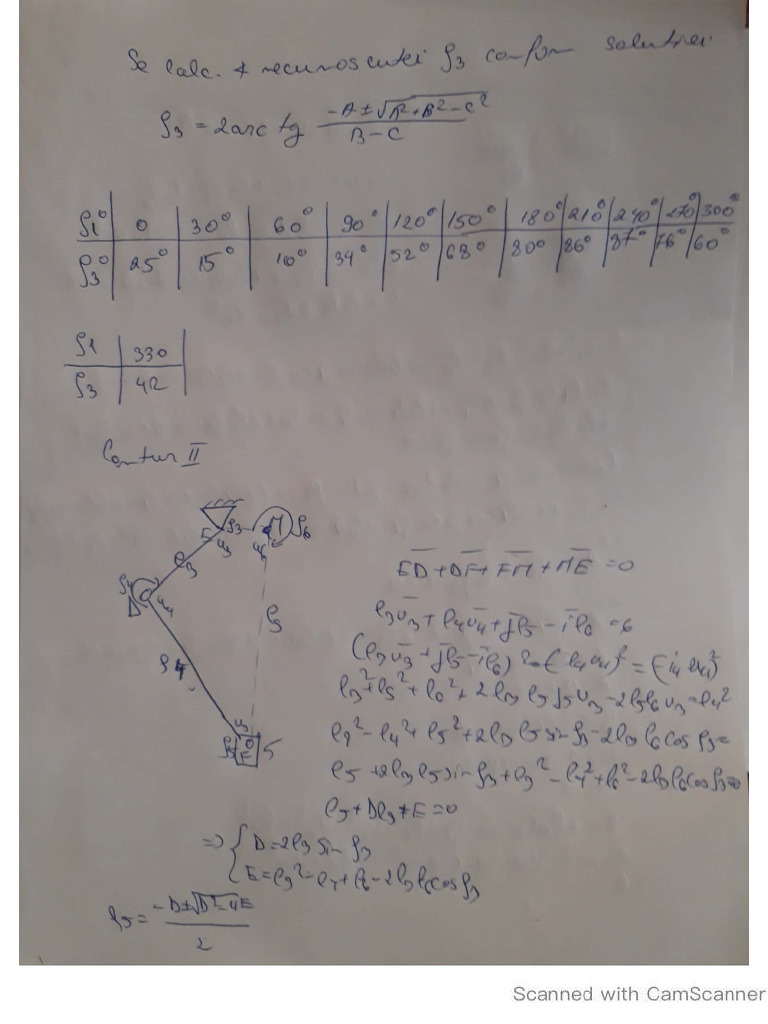 Se calc. ∢ necunoscutei φ3 conform soluției
φ3 = 2arc tg (-A±√(A²+B²-C²))/(B-C)
φ1° | 0 | 30° | 60° | 90° | 120° | 150° | 180° | 210° | 240° | 270° | 300°
φ3° | 25° | 15° | 10° | 34° | 52° | 68° | 80° | 86° | 87° | 76° | 60°
φ1 | 330
φ3 | 42
Contur II
E φ3 M φ6
u3 u6
l3
φ4 D u4
φ4
u5
F 5
ED + DF + FM + ME = 0
l3u3 + l4u4 + jl5 - il6 = 0
l3² + l5² + l6² + 2l3 l5 j u3 - 2l3l6 u3 = l4²
l3² - l4² + l5² + 2l3 l5 sin φ3 - 2l3 l6 cos φ3 =
l5 + 2l3 l5 sin φ3 + l3² - l4² + l6² - 2l3l6cos φ3=0
l5 + Dl3 + E = 0
=> { D = 2l3 sin φ3
E = l3² - l4 + l6 - 2l3 l6cos φ3
l5 = (-D±√(D²-4E))/2
Scanned with CamScanner